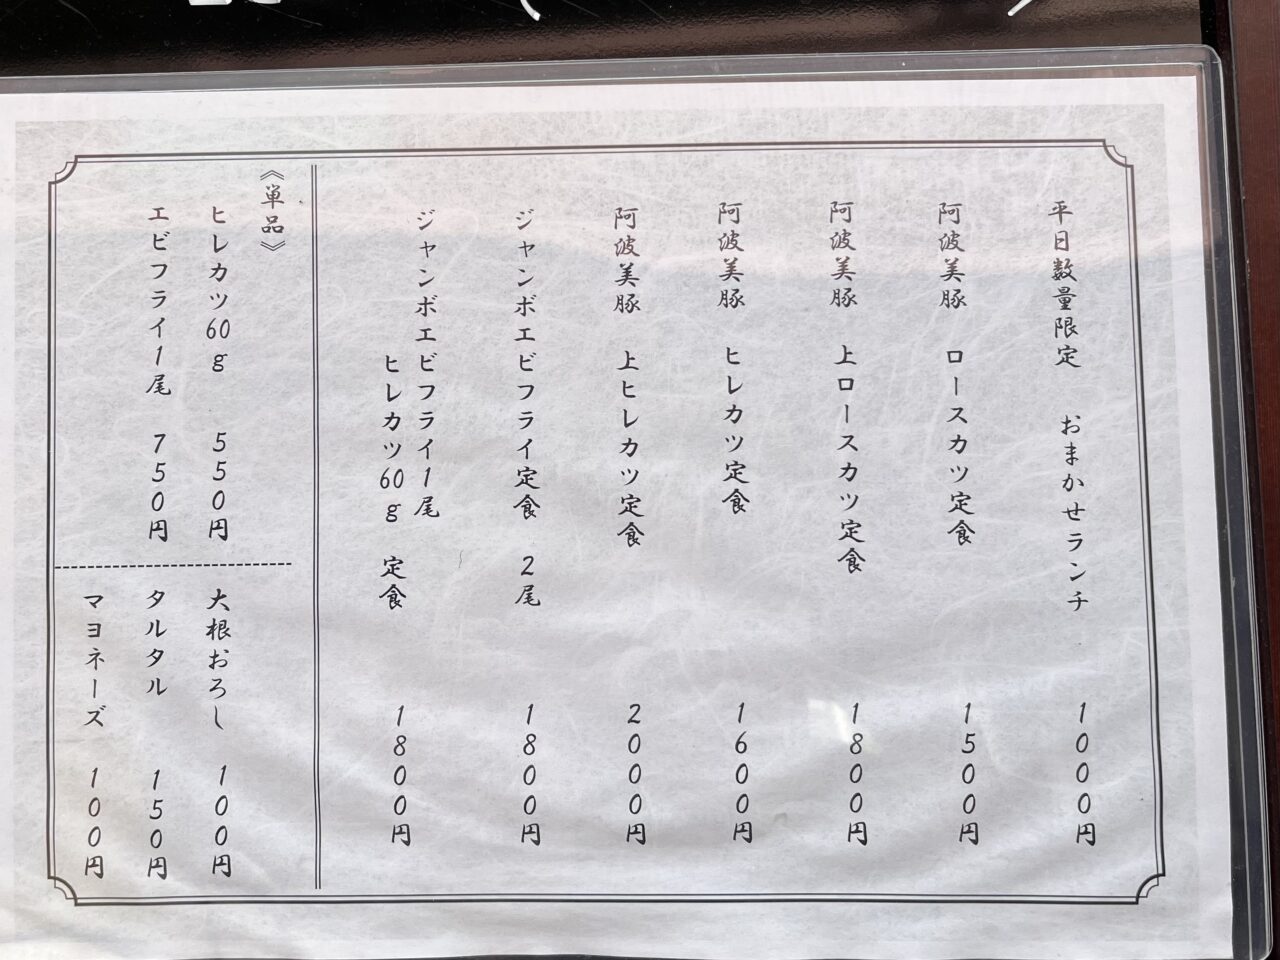 平日数量限定 おまかせランチ 1000円
阿波美豚 ロースカツ定食 1500円
阿波美豚 上ロースカツ定食 1800円
阿波美豚 ヒレカツ定食 1600円
阿波美豚 上ヒレカツ定食 2000円
ジャンボエビフライ定食 2尾 1800円
ジャンボエビフライ1尾
ヒレカツ60g 定食 1800円
《単品》
ヒレカツ60g 550円
エビフライ1尾 750円
大根おろし 100円
タルタル 150円
マヨネーズ 100円